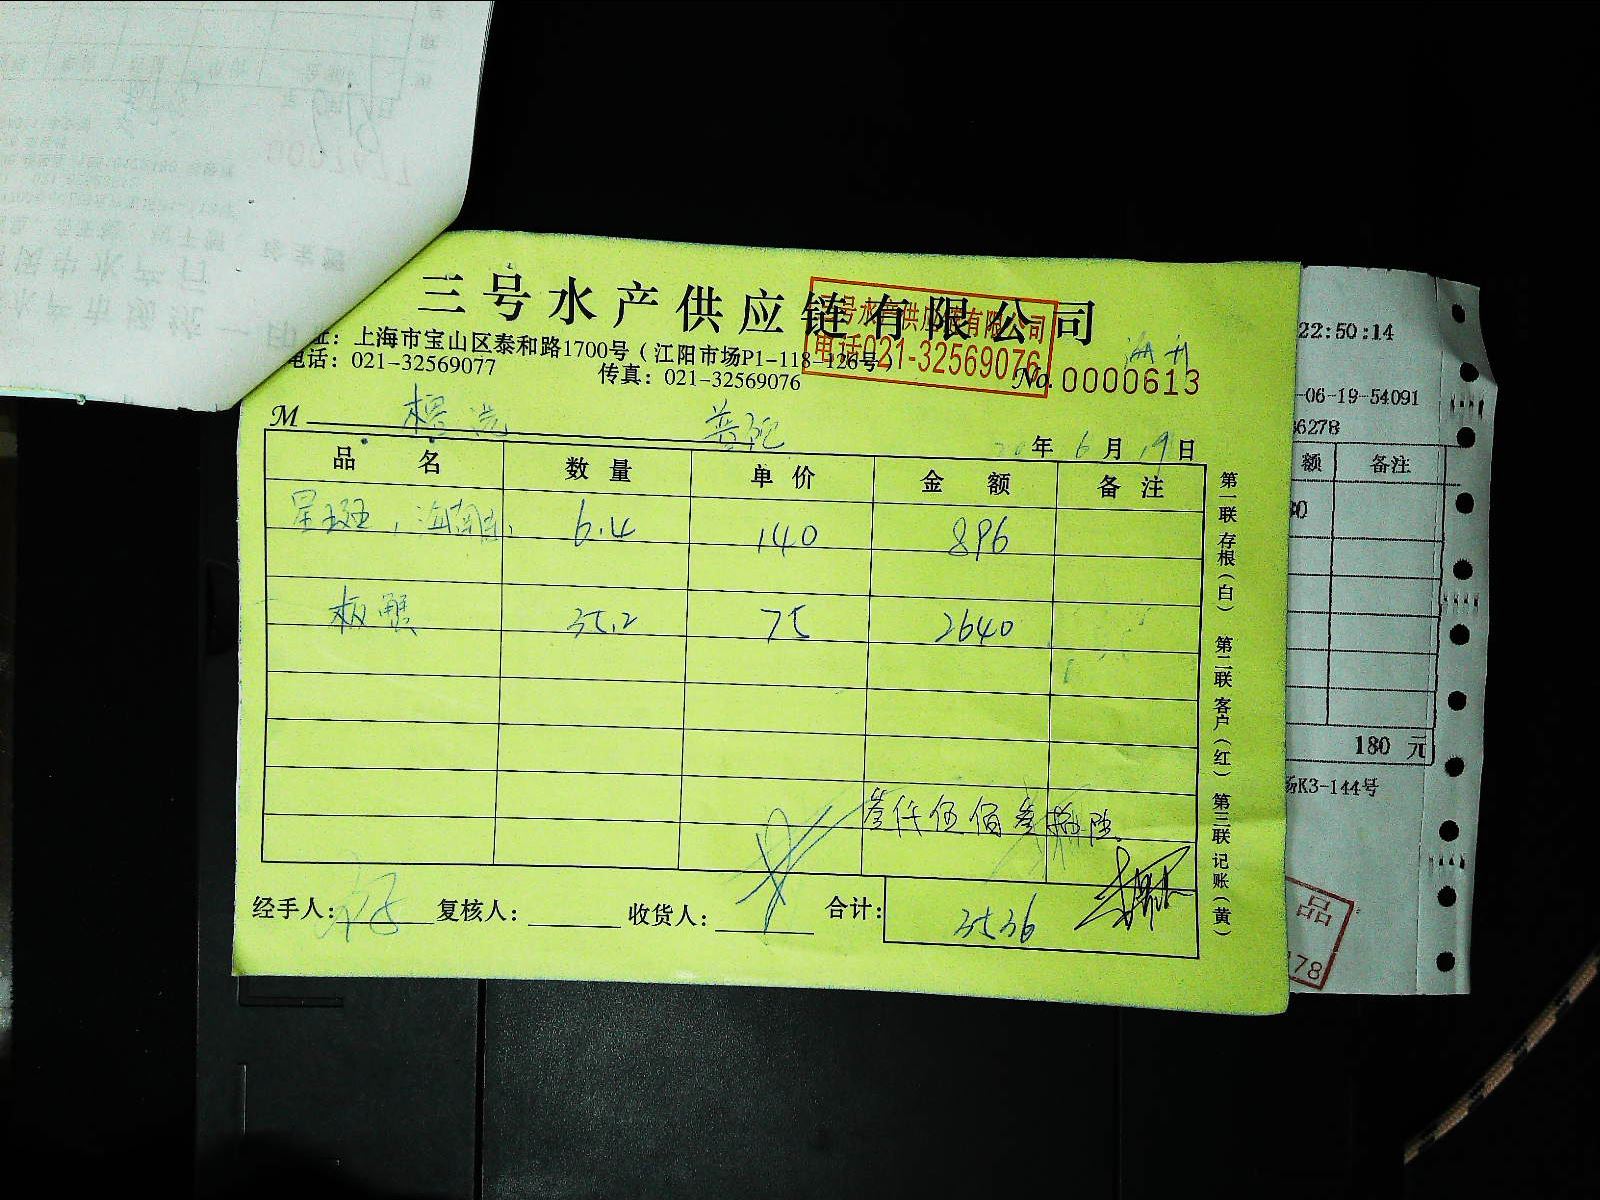 三号水产供应链有限公司
三号水产供应链有限公司
电话021-32569076
址：上海市宝山区泰和路1700号（江阳市场P1-118-126号
电话：021-32569077 传真：021-32569076
No. 0000613
M 普陀
20年6月19日
品 名 数 量 单 价 金 额 备 注
星斑，海南 6.4 140 896
板蟹 35.2 75 2640
叁仟伍佰叁拾陆
经手人： 复核人： 收货人： 合计： 3536
第一联 存根（白） 第二联 客户（红） 第三联 记账（黄）
22:50:14
-06-19-54091
6278
额 备注
180 元
场K3-144号
品
178